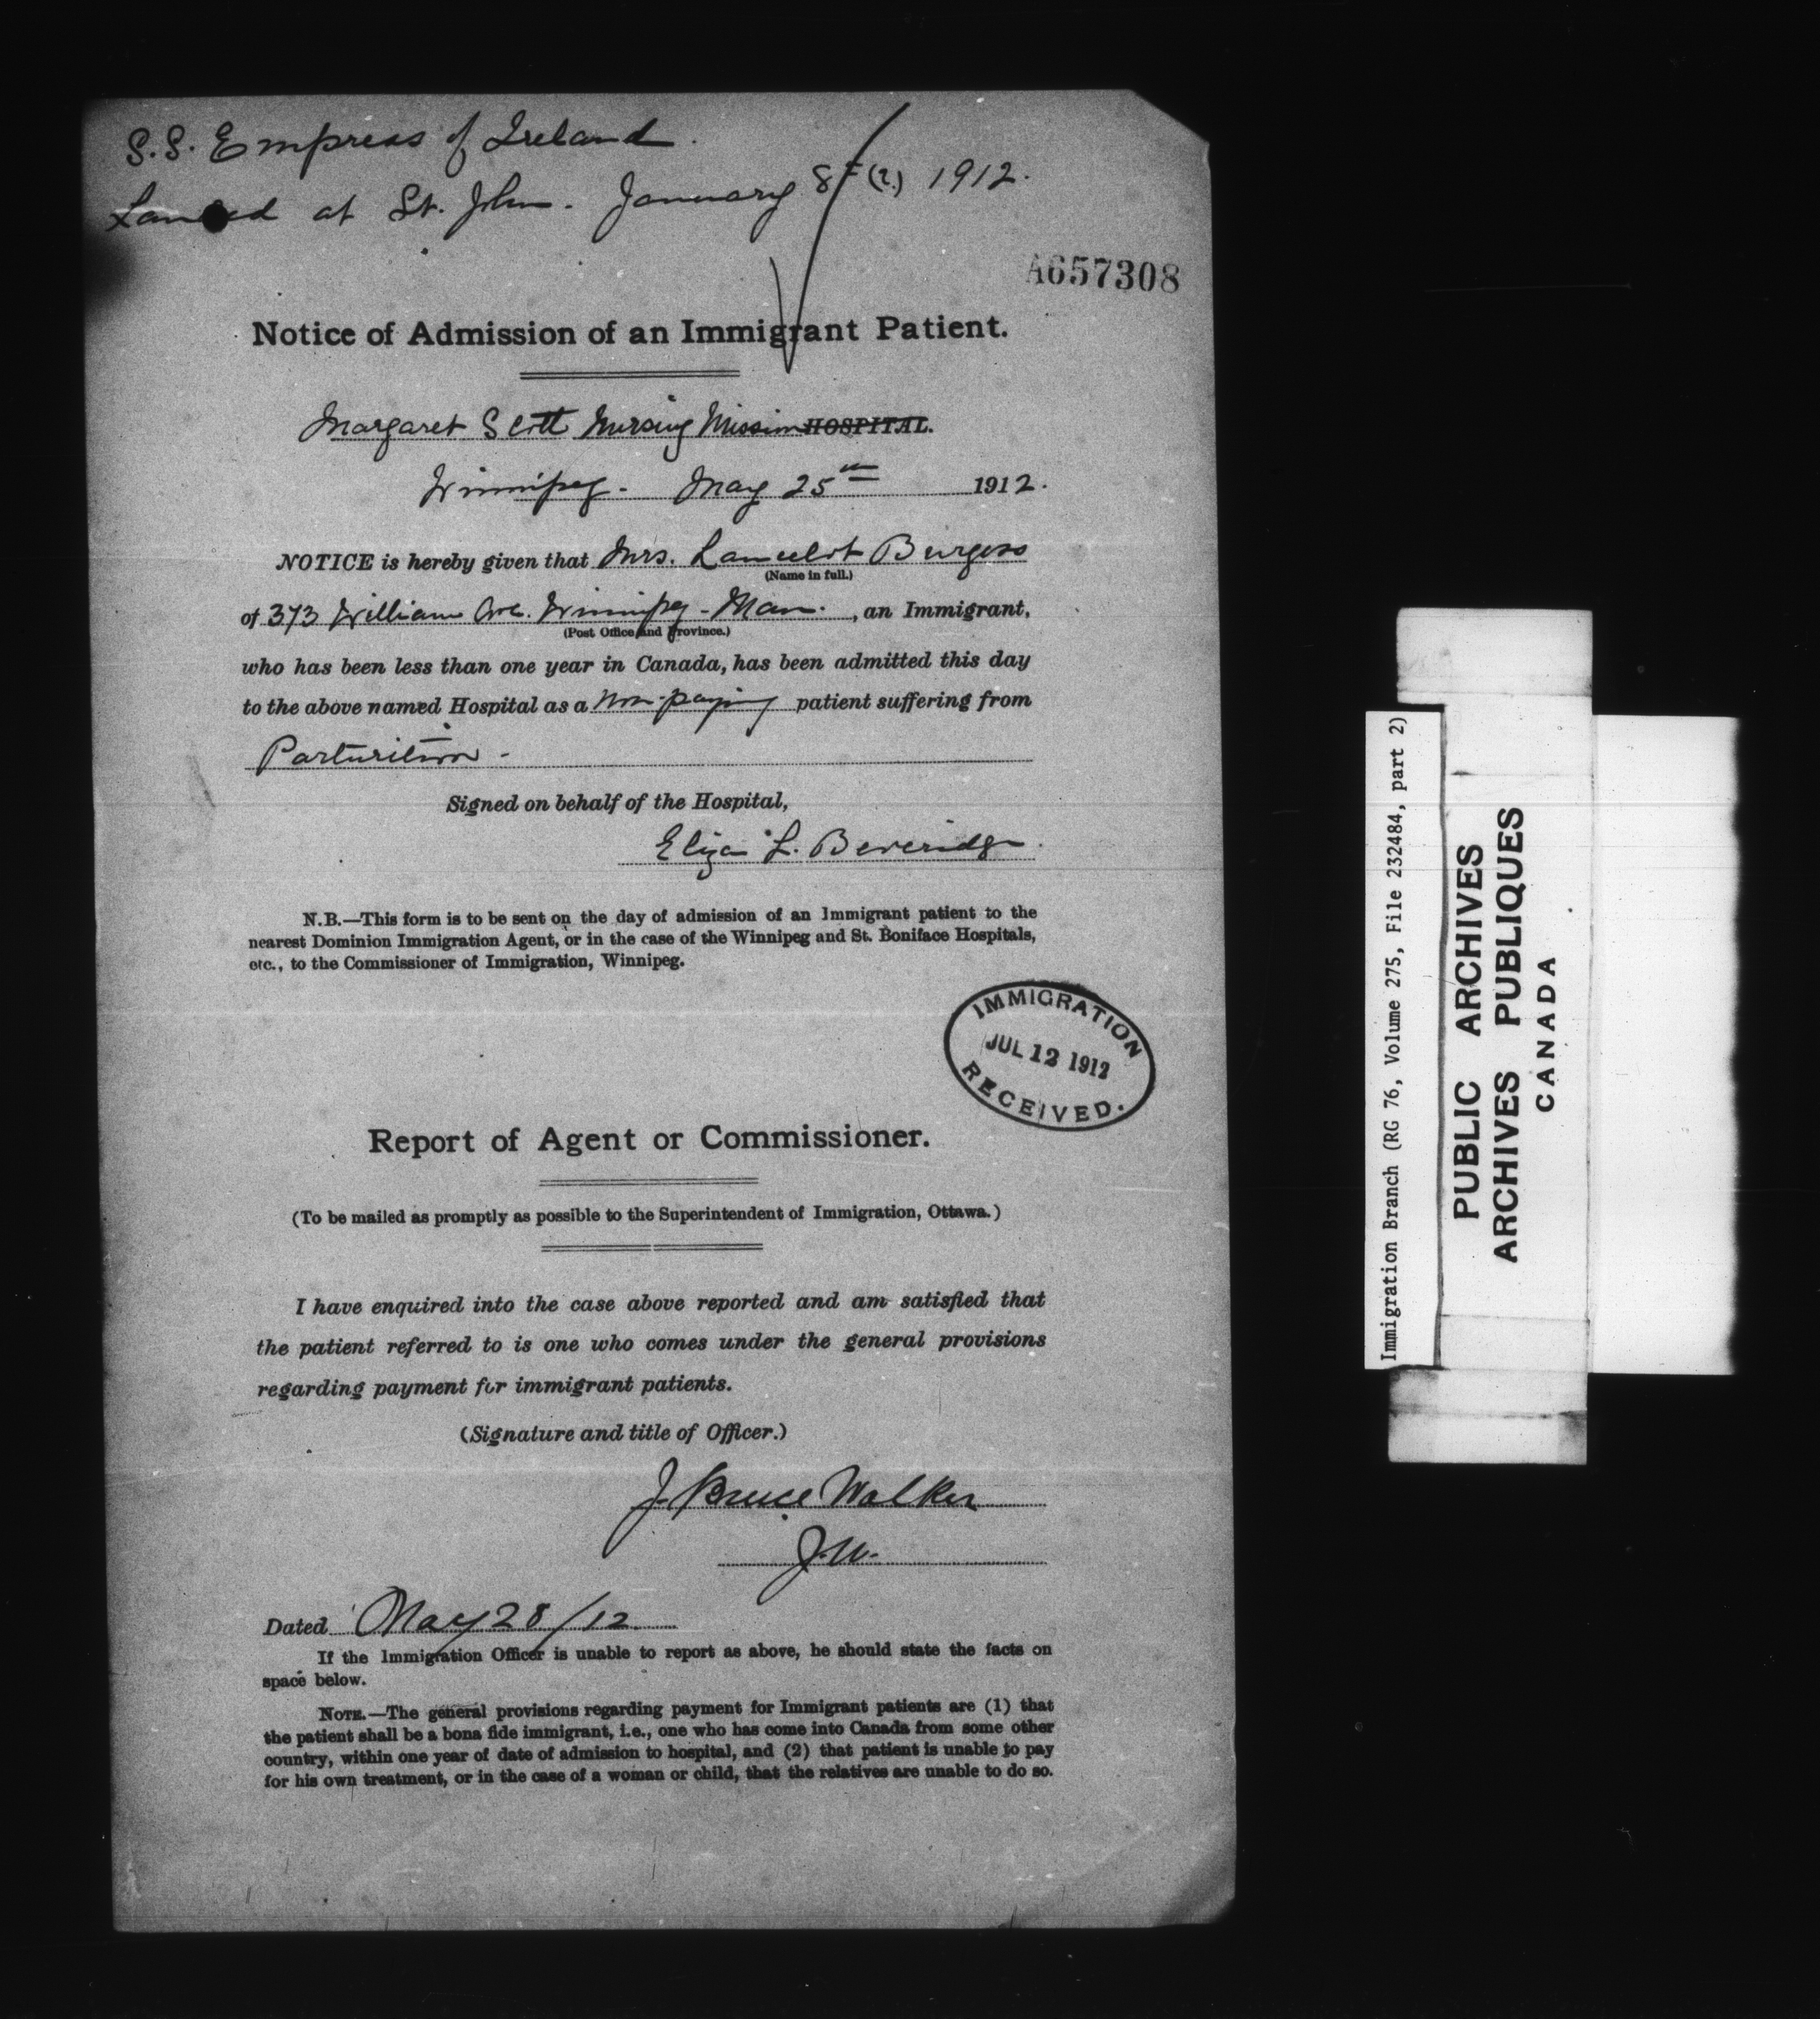 S.S. Empress of Ireland.
Landed at St. John. January 8th (?.) 1912.
A657308
Notice of Admission of an Immigrant Patient.
Margaret Scott Nursing Mission HOSPITAL.
Winnipeg. May 25th 1912.
NOTICE is hereby given that Mrs. Lancelot Burgess
(Name in full.)
of 373 William Ave. Winnipeg - Man. , an Immigrant,
(Post Office and Province.)
who has been less than one year in Canada, has been admitted this day
to the above named Hospital as a non-paying patient suffering from
Parturition -
Signed on behalf of the Hospital,
Eliza L. Beveridge.
N.B.—This form is to be sent on the day of admission of an Immigrant patient to the
nearest Dominion Immigration Agent, or in the case of the Winnipeg and St. Boniface Hospitals,
etc., to the Commissioner of Immigration, Winnipeg.
IMMIGRATION
JUL 12 1912
RECEIVED.
Report of Agent or Commissioner.
(To be mailed as promptly as possible to the Superintendent of Immigration, Ottawa.)
I have enquired into the case above reported and am satisfied that
the patient referred to is one who comes under the general provisions
regarding payment for immigrant patients.
(Signature and title of Officer.)
J. Bruce Walker
J.W.
Dated May 28/12
If the Immigration Officer is unable to report as above, he should state the facts on
space below.
NOTE.—The general provisions regarding payment for Immigrant patients are (1) that
the patient shall be a bona fide immigrant, i.e., one who has come into Canada from some other
country, within one year of date of admission to hospital, and (2) that patient is unable to pay
for his own treatment, or in the case of a woman or child, that the relatives are unable to do so.
Immigration Branch (RG 76, Volume 275, File 232484, part 2)
PUBLIC ARCHIVES
ARCHIVES PUBLIQUES
CANADA